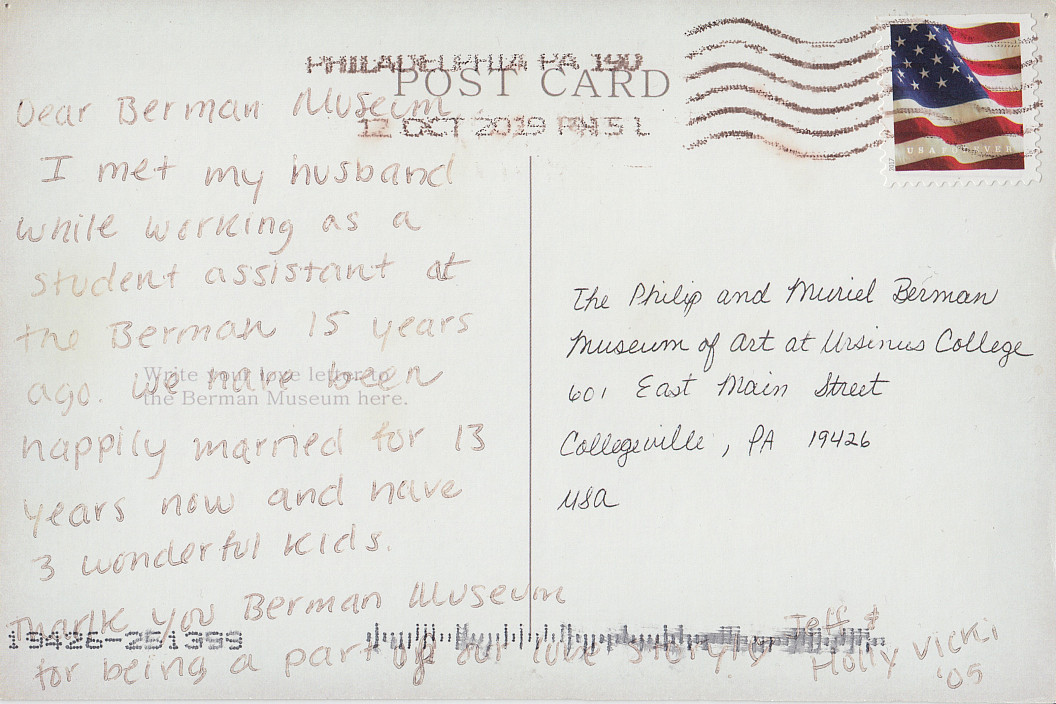 PHILADELPHIA PA 190
POST CARD
12 OCT 2019 PM 5 L
USA FOREVER
2017
Dear Berman Museum,
I met my husband
while working as a
student assistant at
the Berman 15 years
ago. We have been
happily married for 13
years now and have
3 wonderful kids.
Thank you Berman Museum
for being a part of our love story!
Jeff &
Holly Vicki
'05
Write your love letter to
the Berman Museum here.
19426-251399
The Philip and Muriel Berman
Museum of Art at Ursinus College
601 East Main Street
Collegeville, PA 19426
USA